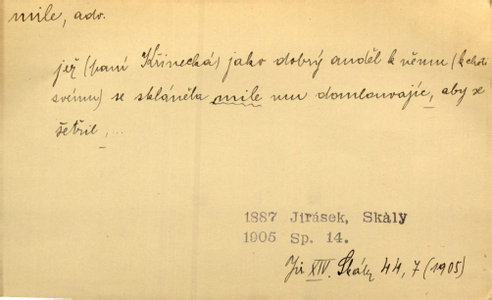 mile, adv.
jež (paní Křinecká) jako dobrý anděl k němu (k choti
svému) se skláněla mile mu domlouvajíc, aby se
šetřil, ...
1887 Jirásek, Skály
1905 Sp. 14.
Jir XIV. Skály 44, 7 (1905)